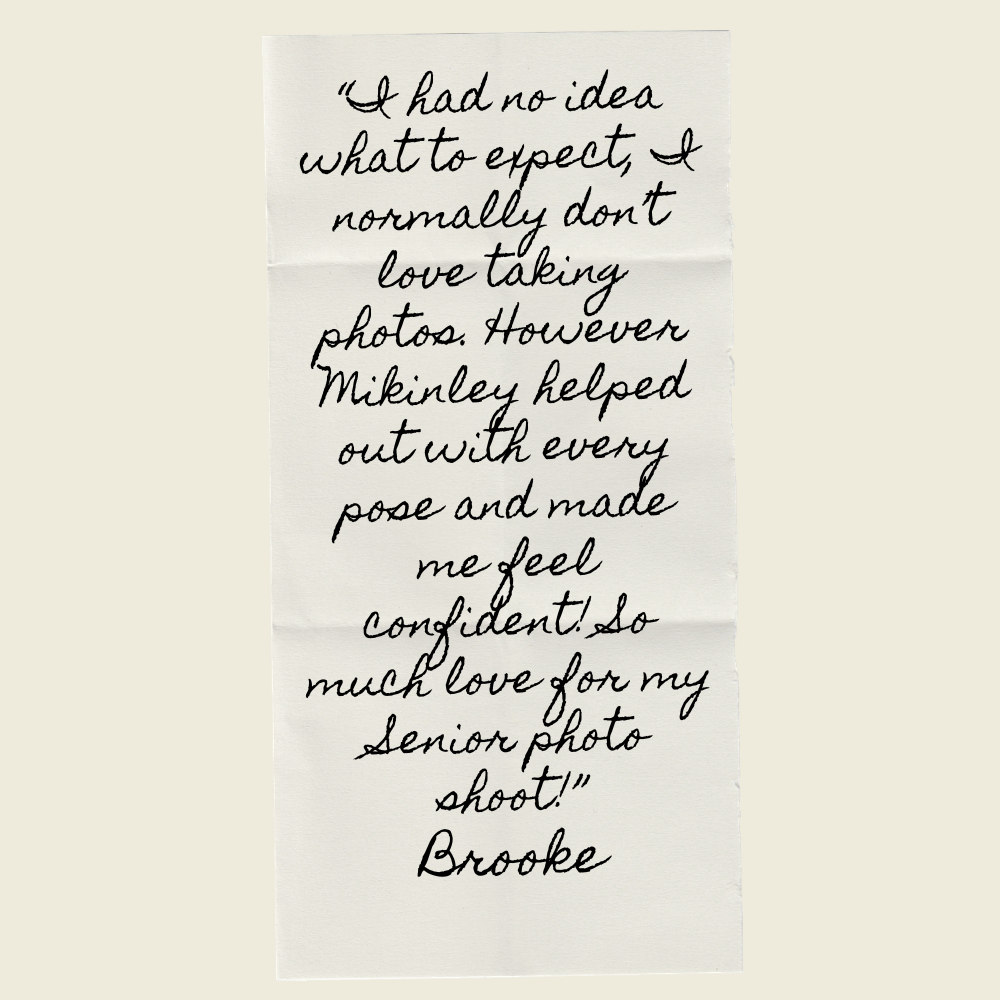 “I had no idea
what to expect, I
normally don’t
love taking
photos. However
Mikinley helped
out with every
pose and made
me feel
confident! So
much love for my
Senior photo
shoot!”
Brooke